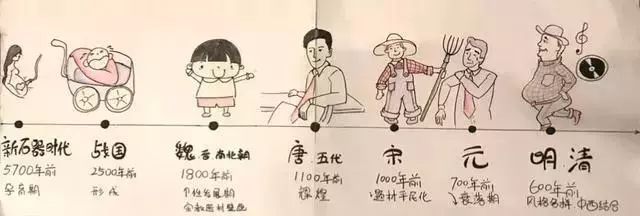 新石器时代
5700年前
孕育期
战国
2500年前
形成
魏晋南北朝
1800年前
个性发展期
唐.五代
1100年前
辉煌
宋
1000年前
题材平民化
元
700年前
衰落期
明.清
600年前
风格多样.中西结合